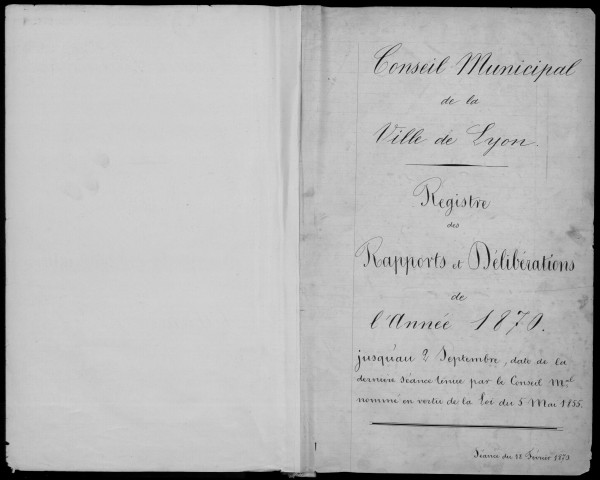 Conseil Municipal
de la
Ville de Lyon.
Registre
des
Rapports et Délibérations
de
l'Année 1870.
jusqu'au 2 Septembre, date de la
dernière séance tenue par le Conseil Mal
nommé en vertu de la Loi du 5 Mai 1855.
Séance du 12 Février 1870